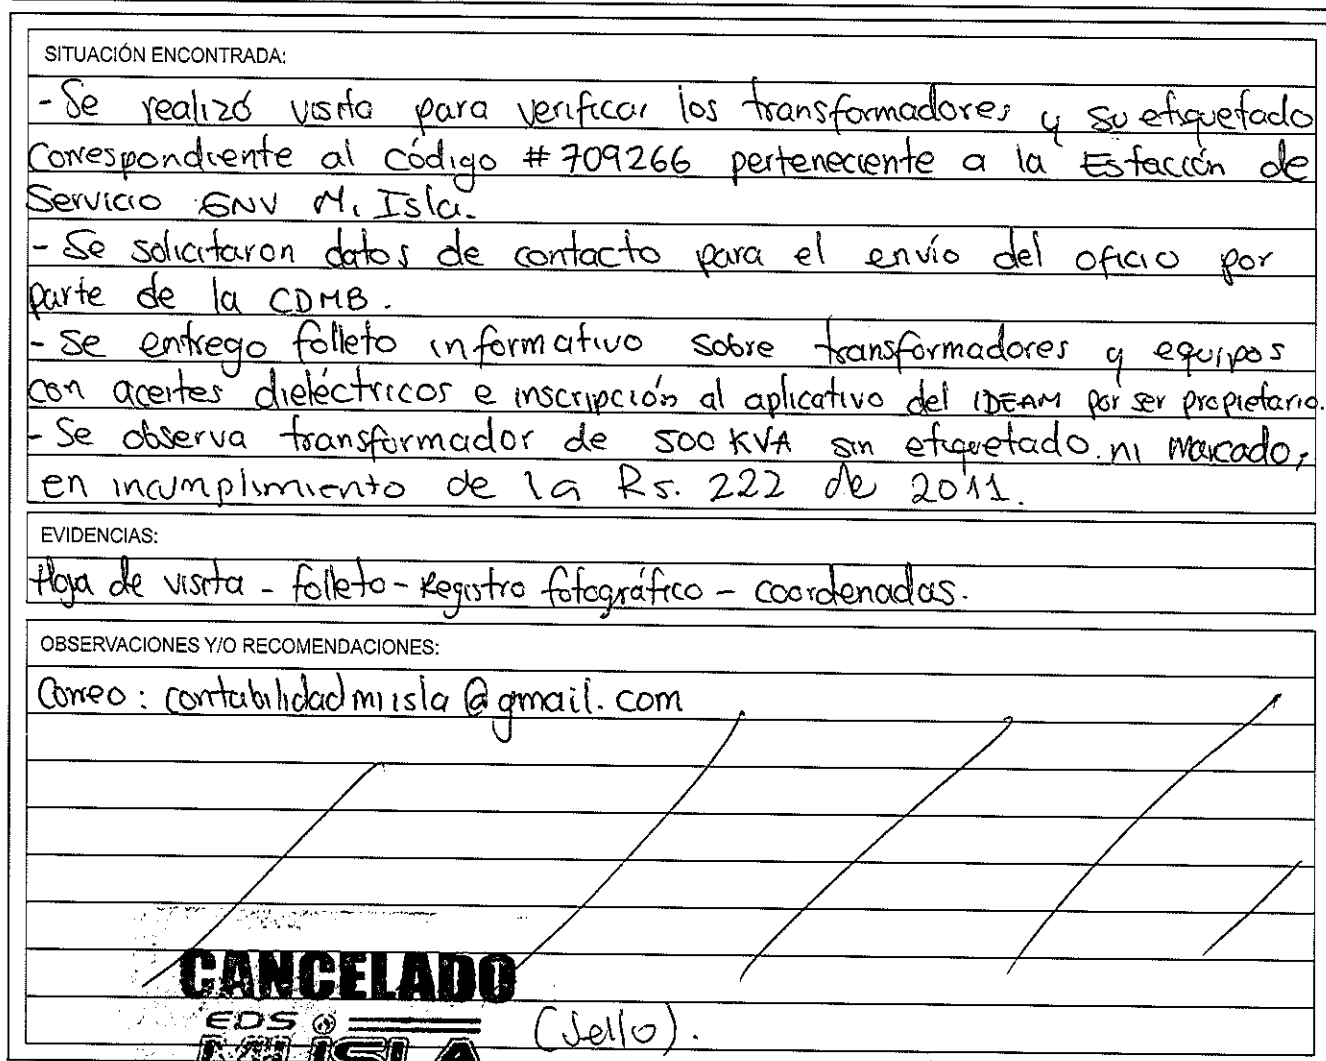 SITUACIÓN ENCONTRADA:
- Se realizó visita para verificar los transformadores y su etiquetado
Correspondiente al código #709266 perteneciente a la Estación de
Servicio GNV Mi Isla.
- Se solicitaron datos de contacto para el envío del oficio por
parte de la CDMB.
- Se entrego folleto informativo sobre transformadores y equipos
con aceites dieléctricos e inscripción al aplicativo del IDEAM por ser propietario.
- Se observa transformador de 500 KVA sin etiquetado ni marcado,
en incumplimiento de la Rs. 222 de 2011.
EVIDENCIAS:
Hoja de visita - folleto - Registro fotográfico - coordenadas.
OBSERVACIONES Y/O RECOMENDACIONES:
Correo: contabilidadmiisla@gmail.com
CANCELADO
EDS
MI ISLA
(Sello).